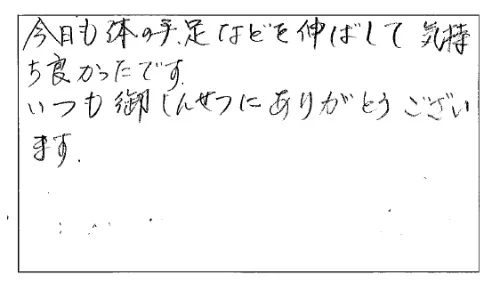 今日も体の手、足などを伸ばして気持
ち良かったです。
いつも御しんせつにありがとうござい
ます。